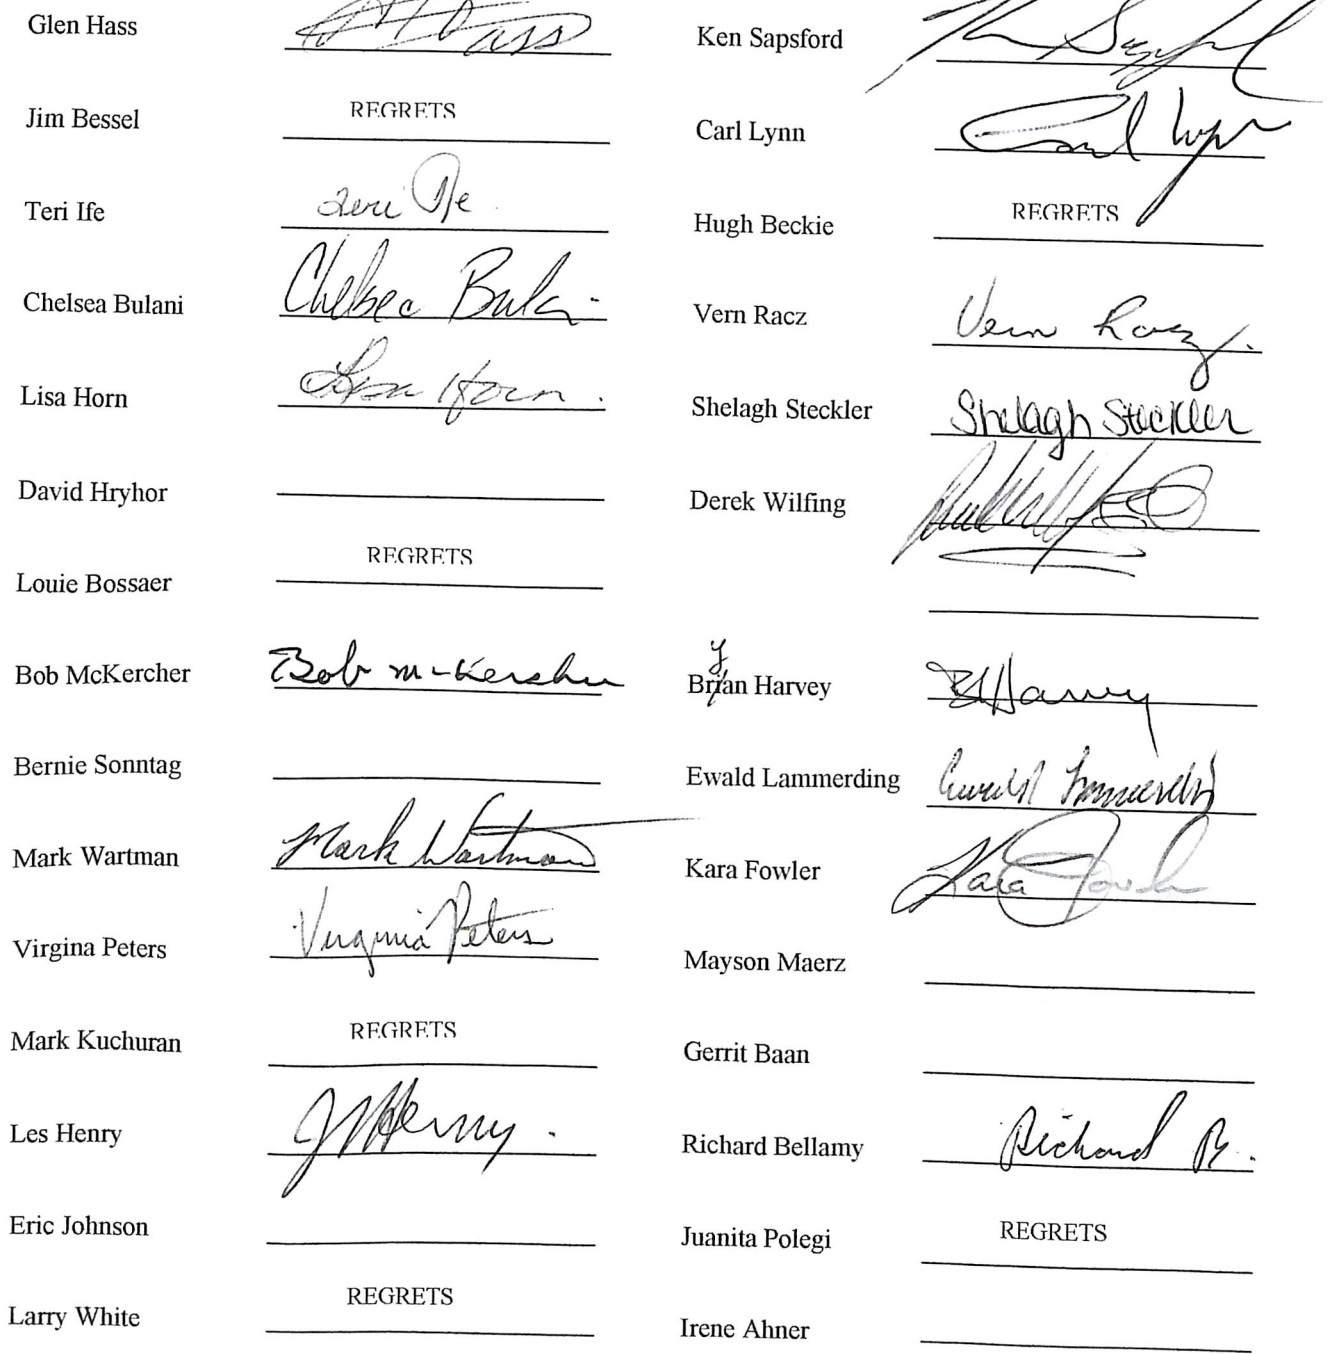 Glen Hass
Jim Bessel REGRETS
Teri Ife Teri Ife
Chelsea Bulani Chelsea Bulani
Lisa Horn Lisa Horn.
David Hryhor
Louie Bossaer REGRETS
Bob McKercher Bob McKercher
Bernie Sonntag
Mark Wartman Mark Wartman
Virgina Peters Virginia Peters
Mark Kuchuran REGRETS
Les Henry JLHenry.
Eric Johnson
Larry White REGRETS
Ken Sapsford Ken Sapsford
Carl Lynn Carl Lynn
Hugh Beckie REGRETS
Vern Racz Vern Racz.
Shelagh Steckler Shelagh Steckler
Derek Wilfing
Bryan Harvey BHarvey
Ewald Lammerding Ewald Lammerding
Kara Fowler Kara Fowler
Mayson Maerz
Gerrit Baan
Richard Bellamy Richard B.
Juanita Polegi REGRETS
Irene Ahner